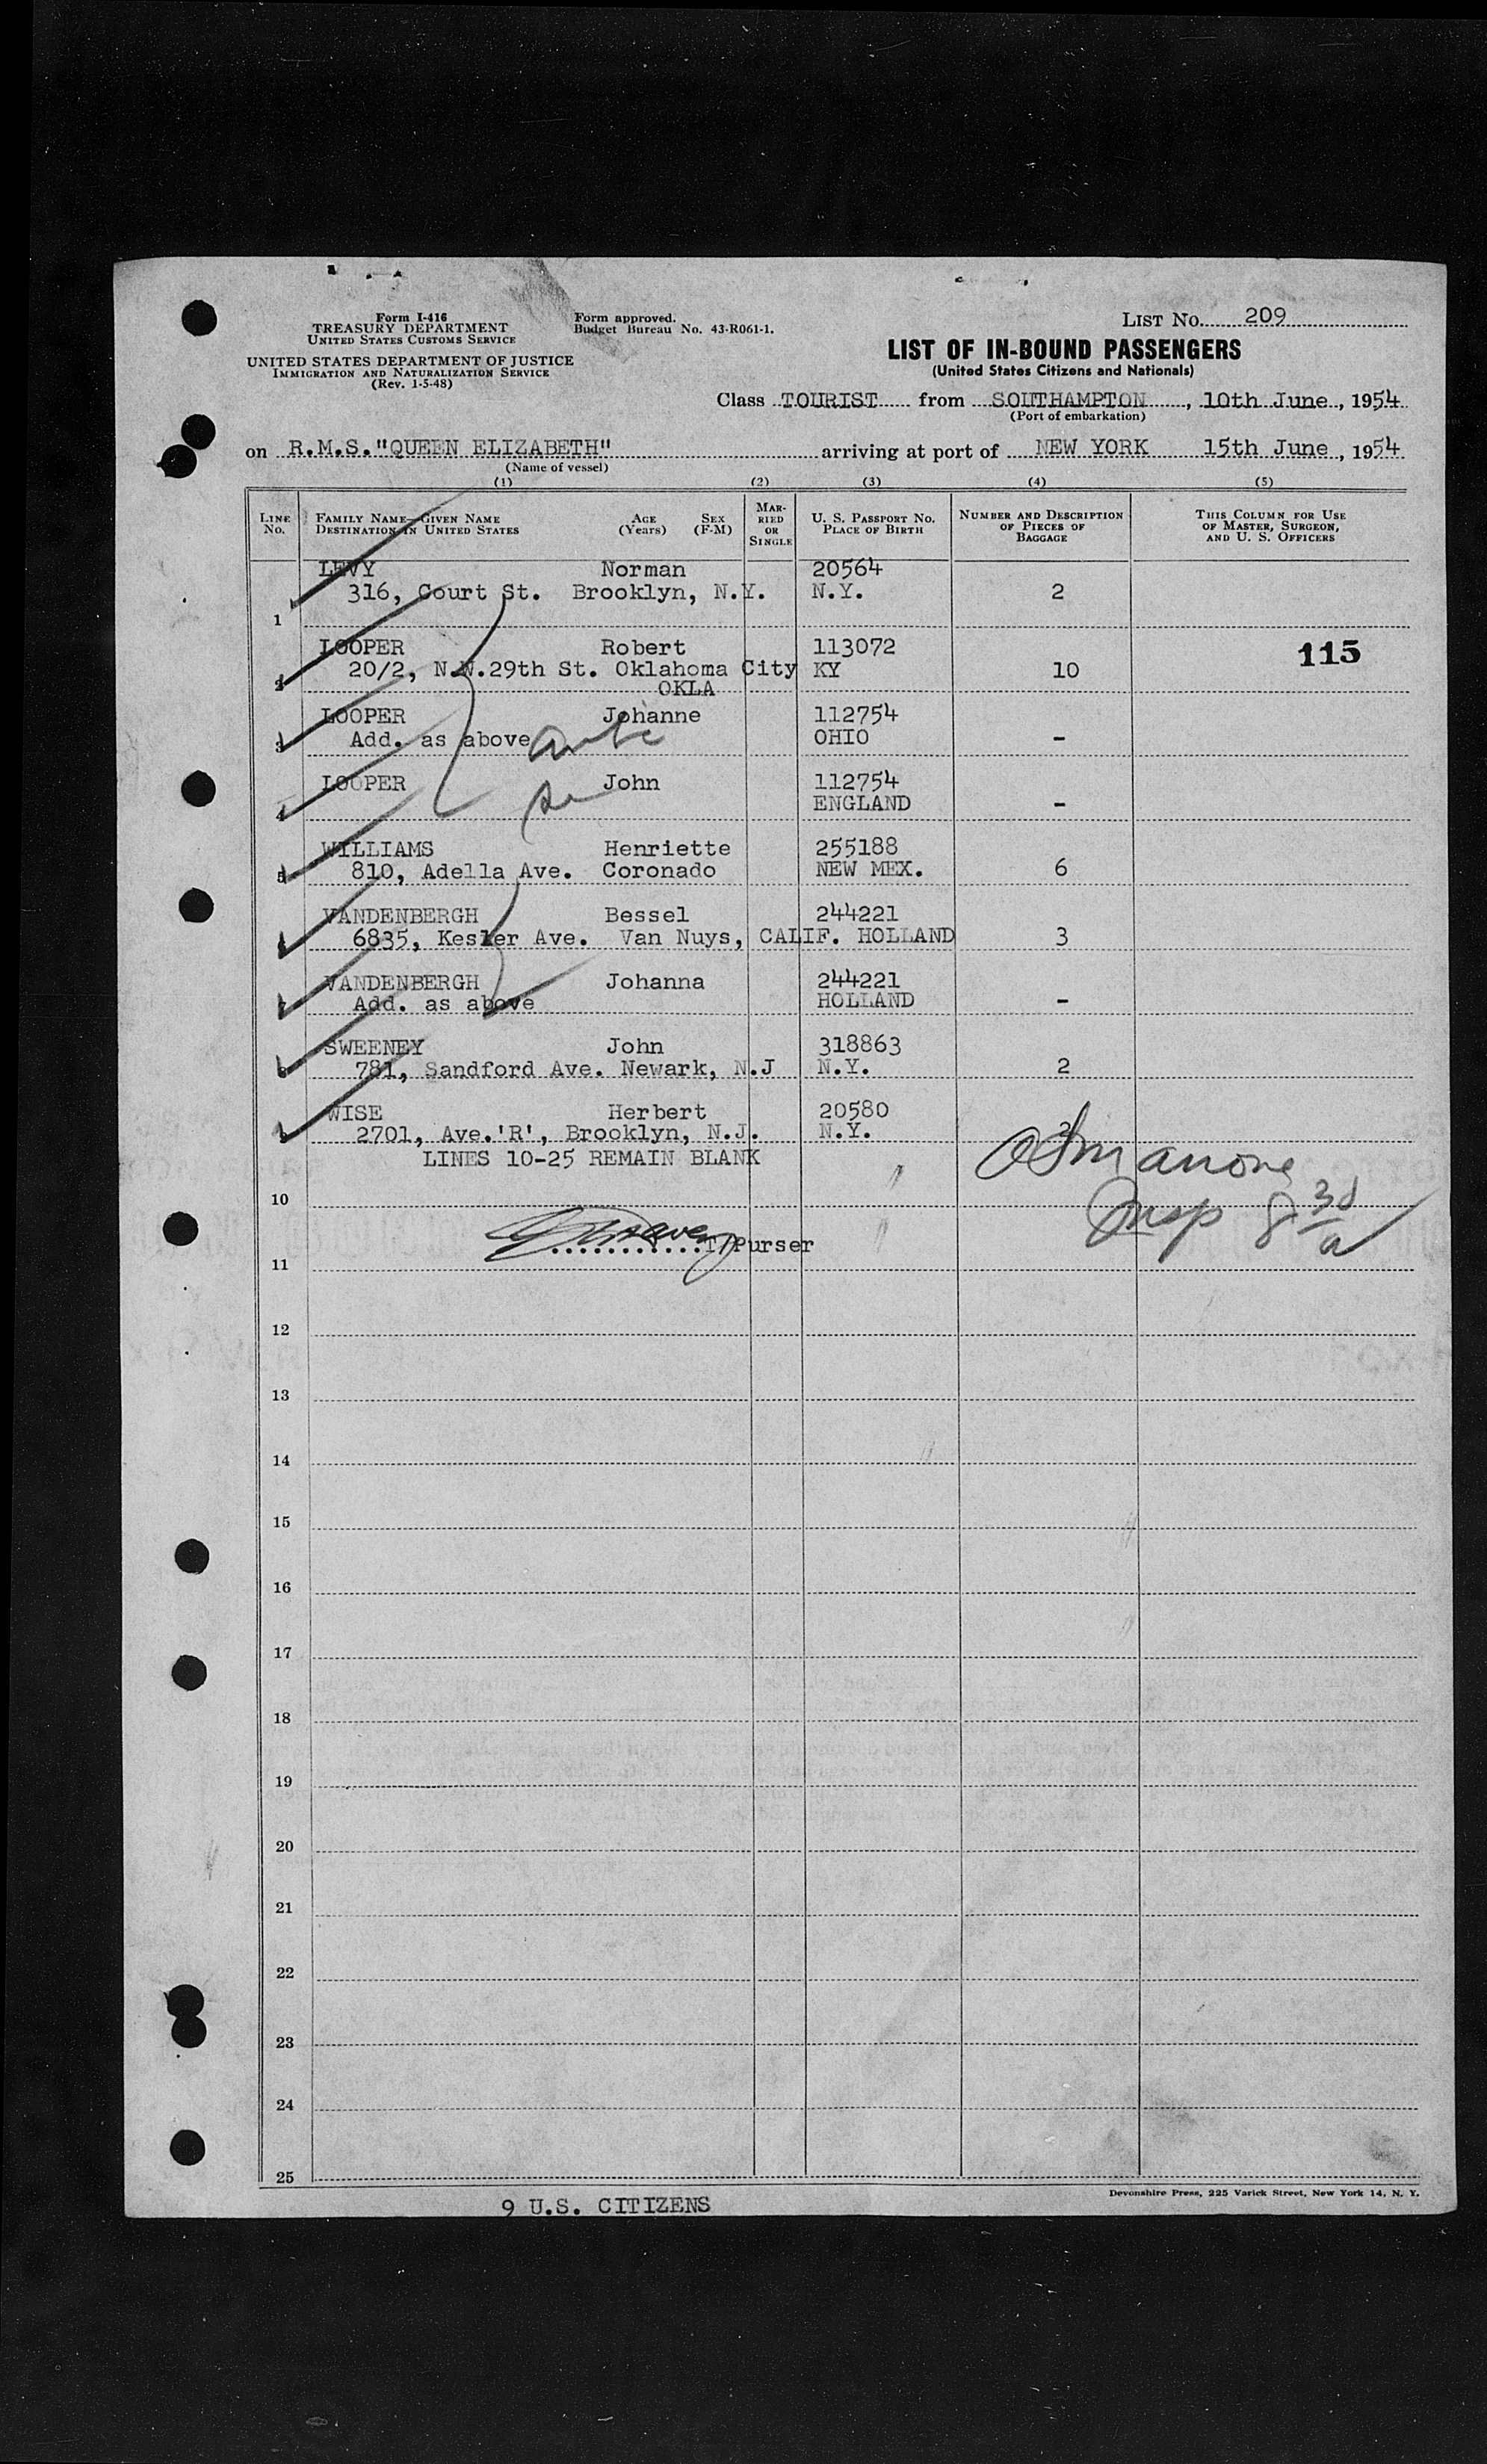 Form I-416
TREASURY DEPARTMENT
UNITED STATES CUSTOMS SERVICE
UNITED STATES DEPARTMENT OF JUSTICE
IMMIGRATION AND NATURALIZATION SERVICE
(Rev. 1-5-48)
Form approved.
Budget Bureau No. 43-R061-1.
LIST No. 209
LIST OF IN-BOUND PASSENGERS
(United States Citizens and Nationals)
Class TOURIST from SOUTHAMPTON, 10th June, 1954
(Port of embarkation)
on R.M.S."QUEEN ELIZABETH" arriving at port of NEW YORK 15th June, 1954
(Name of vessel)
(1) (2) (3) (4) (5)
LINE No.
FAMILY NAME—GIVEN NAME
DESTINATION IN UNITED STATES
AGE (Years)
SEX (F-M)
MARRIED OR SINGLE
U. S. PASSPORT NO.
PLACE OF BIRTH
NUMBER AND DESCRIPTION OF PIECES OF BAGGAGE
THIS COLUMN FOR USE OF MASTER, SURGEON, AND U. S. OFFICERS
LEVY Norman 20564
316, Court St. Brooklyn, N.Y. N.Y. 2
1
LOOPER Robert 113072 115
20/2, N.W.29th St. Oklahoma City KY 10
2 OKLA
LOOPER Johanne 112754
3 Add. as above OHIO -
LOOPER John 112754
4 ENGLAND -
WILLIAMS Henriette 255188
5 810, Adella Ave. Coronado NEW MEX. 6
VANDENBERGH Bessel 244221
6 6835, Kesler Ave. Van Nuys, CALIF. HOLLAND 3
VANDENBERGH Johanna 244221
7 Add. as above HOLLAND -
SWEENEY John 318863
8 781, Sandford Ave. Newark, N.J N.Y. 2
WISE Herbert 20580
9 2701, Ave.'R', Brooklyn, N.J. N.Y.
LINES 10-25 REMAIN BLANK
10
Insp
T/Purser
11
12
13
14
15
16
17
18
19
20
21
22
23
24
25
Devonshire Press, 225 Varick Street, New York 14, N. Y.
9 U.S. CITIZENS